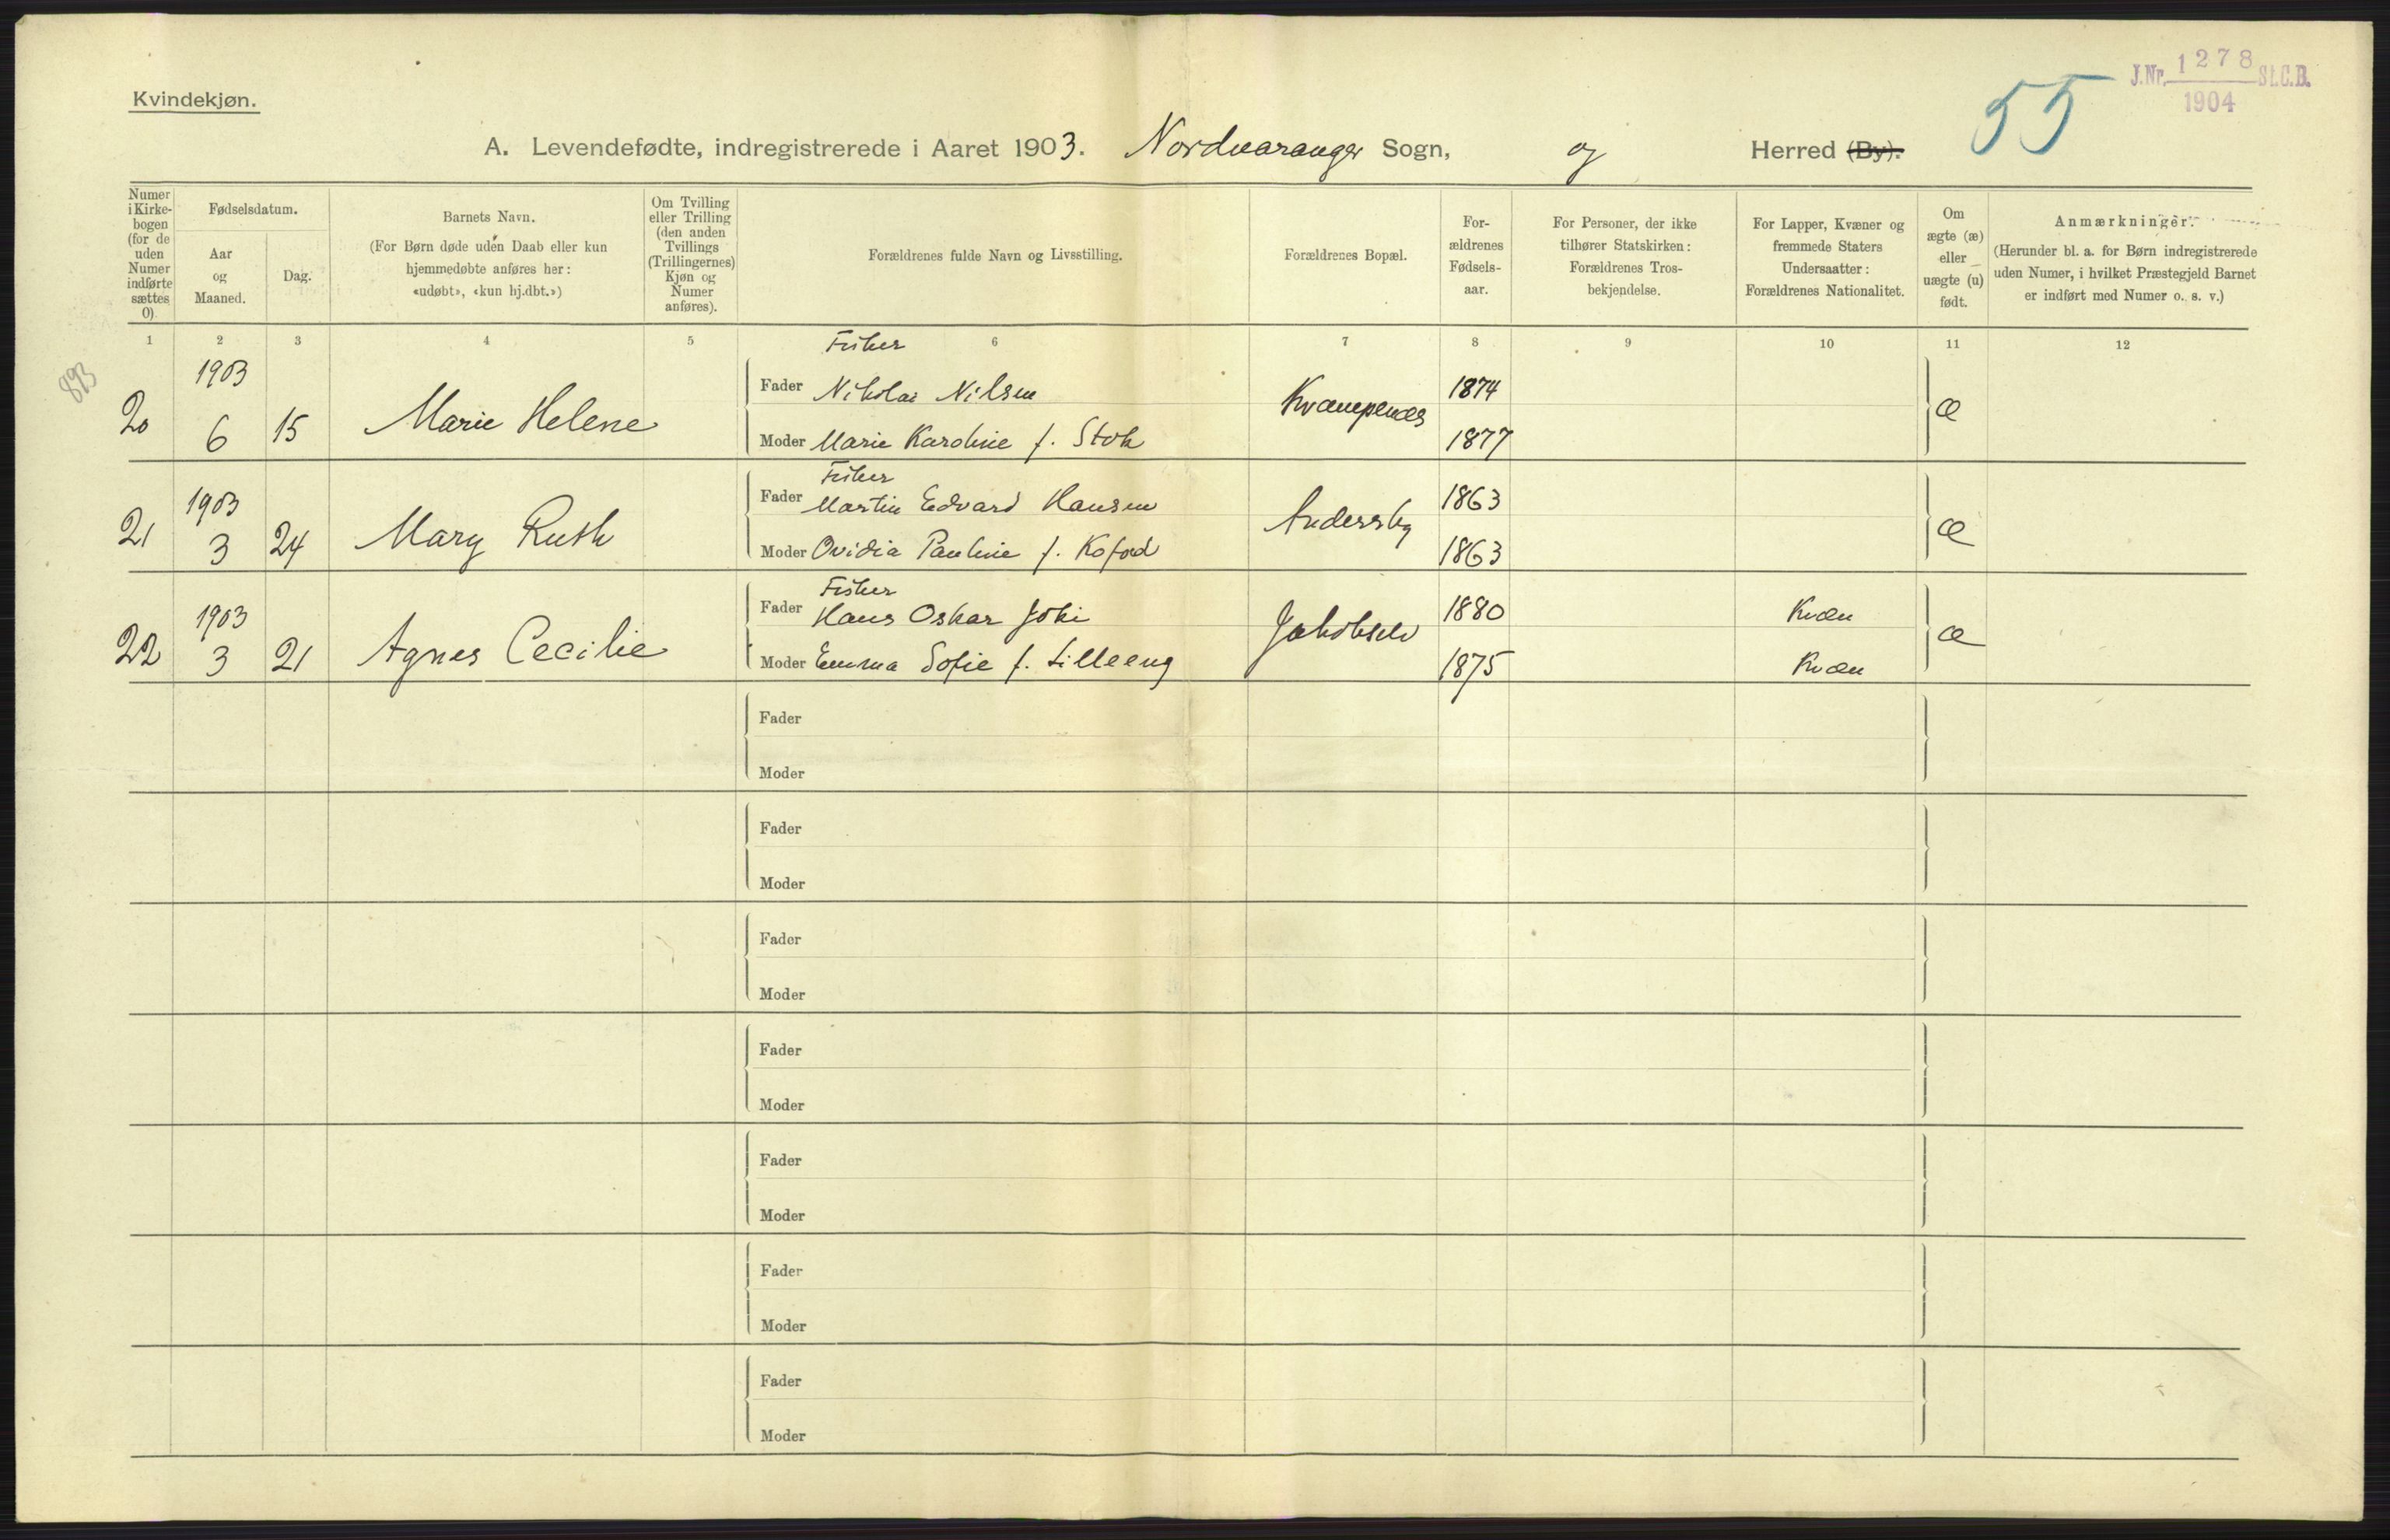 Kvindekjøn.
J.Nr. 1278 St.C.B.
1904
55
A. Levendefødte, indregistrerede i Aaret 1903. Nordvaranger Sogn, og Herred (By).
Numer i Kirkebogen (for de uden Numer indførte sættes 0).
Fødselsdatum.
Aar og Maaned.
Dag.
Barnets Navn.
(For Børn døde uden Daab eller kun hjemmedøbte anføres her: «udøbt», «kun hj.dbt.»)
Om Tvilling eller Trilling (den anden Tvillings (Trillingernes) Kjøn og Numer anføres).
Forældrenes fulde Navn og Livsstilling.
Forældrenes Bopæl.
Forældrenes Fødselsaar.
For Personer, der ikke tilhører Statskirken: Forældrenes Trosbekjendelse.
For Lapper, Kvæner og fremmede Staters Undersaatter: Forældrenes Nationalitet.
Om ægte (æ) eller uægte (u) født.
Anmærkninger.
(Herunder bl. a. for Børn indregistrerede uden Numer, i hvilket Præstegjeld Barnet er indført med Numer o. s. v.)
1 2 3 4 5 6 7 8 9 10 11 12
893
20 1903 6 15 Marie Helene
Fisker
Fader Nikolai Nilsen Kvampenes 1874 æ
Moder Marie Karoline f. Stok 1877
21 1903 3 24 Mary Ruth
Fisker
Fader Martin Edvard Hansen Andersby 1863 æ
Moder Ovidia Pauline f. Kofoed 1863
22 1903 3 21 Agnes Cecilie
Fisker
Fader Hans Oskar Joki Jakobselv 1880 Kvæn æ
Moder Emma Sofie f. Lilleeng 1875 Kvæn
Fader
Moder
Fader
Moder
Fader
Moder
Fader
Moder
Fader
Moder
Fader
Moder
Fader
Moder